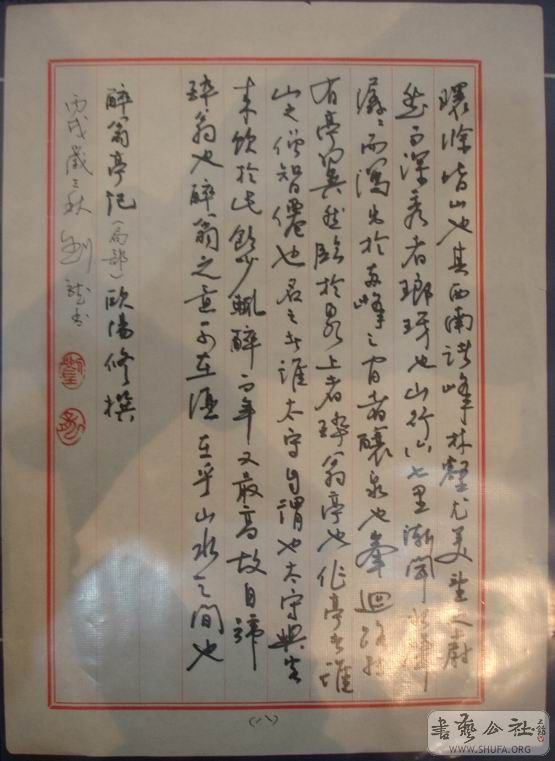 環滁皆山也其西南諸峰林壑尤美望之蔚
然而深秀者瑯琊也山行六七里漸聞水聲
潺潺而瀉出於兩峰之間者釀泉也峯迴路轉
有亭翼然臨於泉上者醉翁亭也作亭者誰
山之僧智僊也名之者誰太守自謂也太守與客
來飲於此飲少輒醉而年又最高故自號
醉翁也醉翁之意不在酒在乎山水之間也
醉翁亭記(局部)歐陽修撰
丙戌歲之秋劉 書
(八)
書藝公社
WWW.SHUFA.ORG